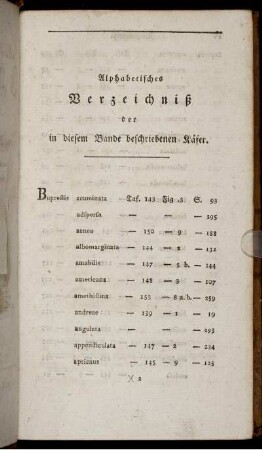 Alphabetisches
Verzeichniß
der
in diesem Bande beschriebenen Käfer.
Buprestis acuminata Taf. 143 Fig. 2. S. 93
adspersa — — — — 295
aenea — 150 — 9 — 188
albomarginata — 144 — 2 — 132
amabilis — 147 — 5 b. — 144
americana — 148 — 3 — 107
amethistina — 153 — 8 a. b. — 259
andreae — 139 — 1 — 19
angulata — — — — 293
appendiculata — 147 — 2 — 234
apricans — 145 — 9 — 123
X 2